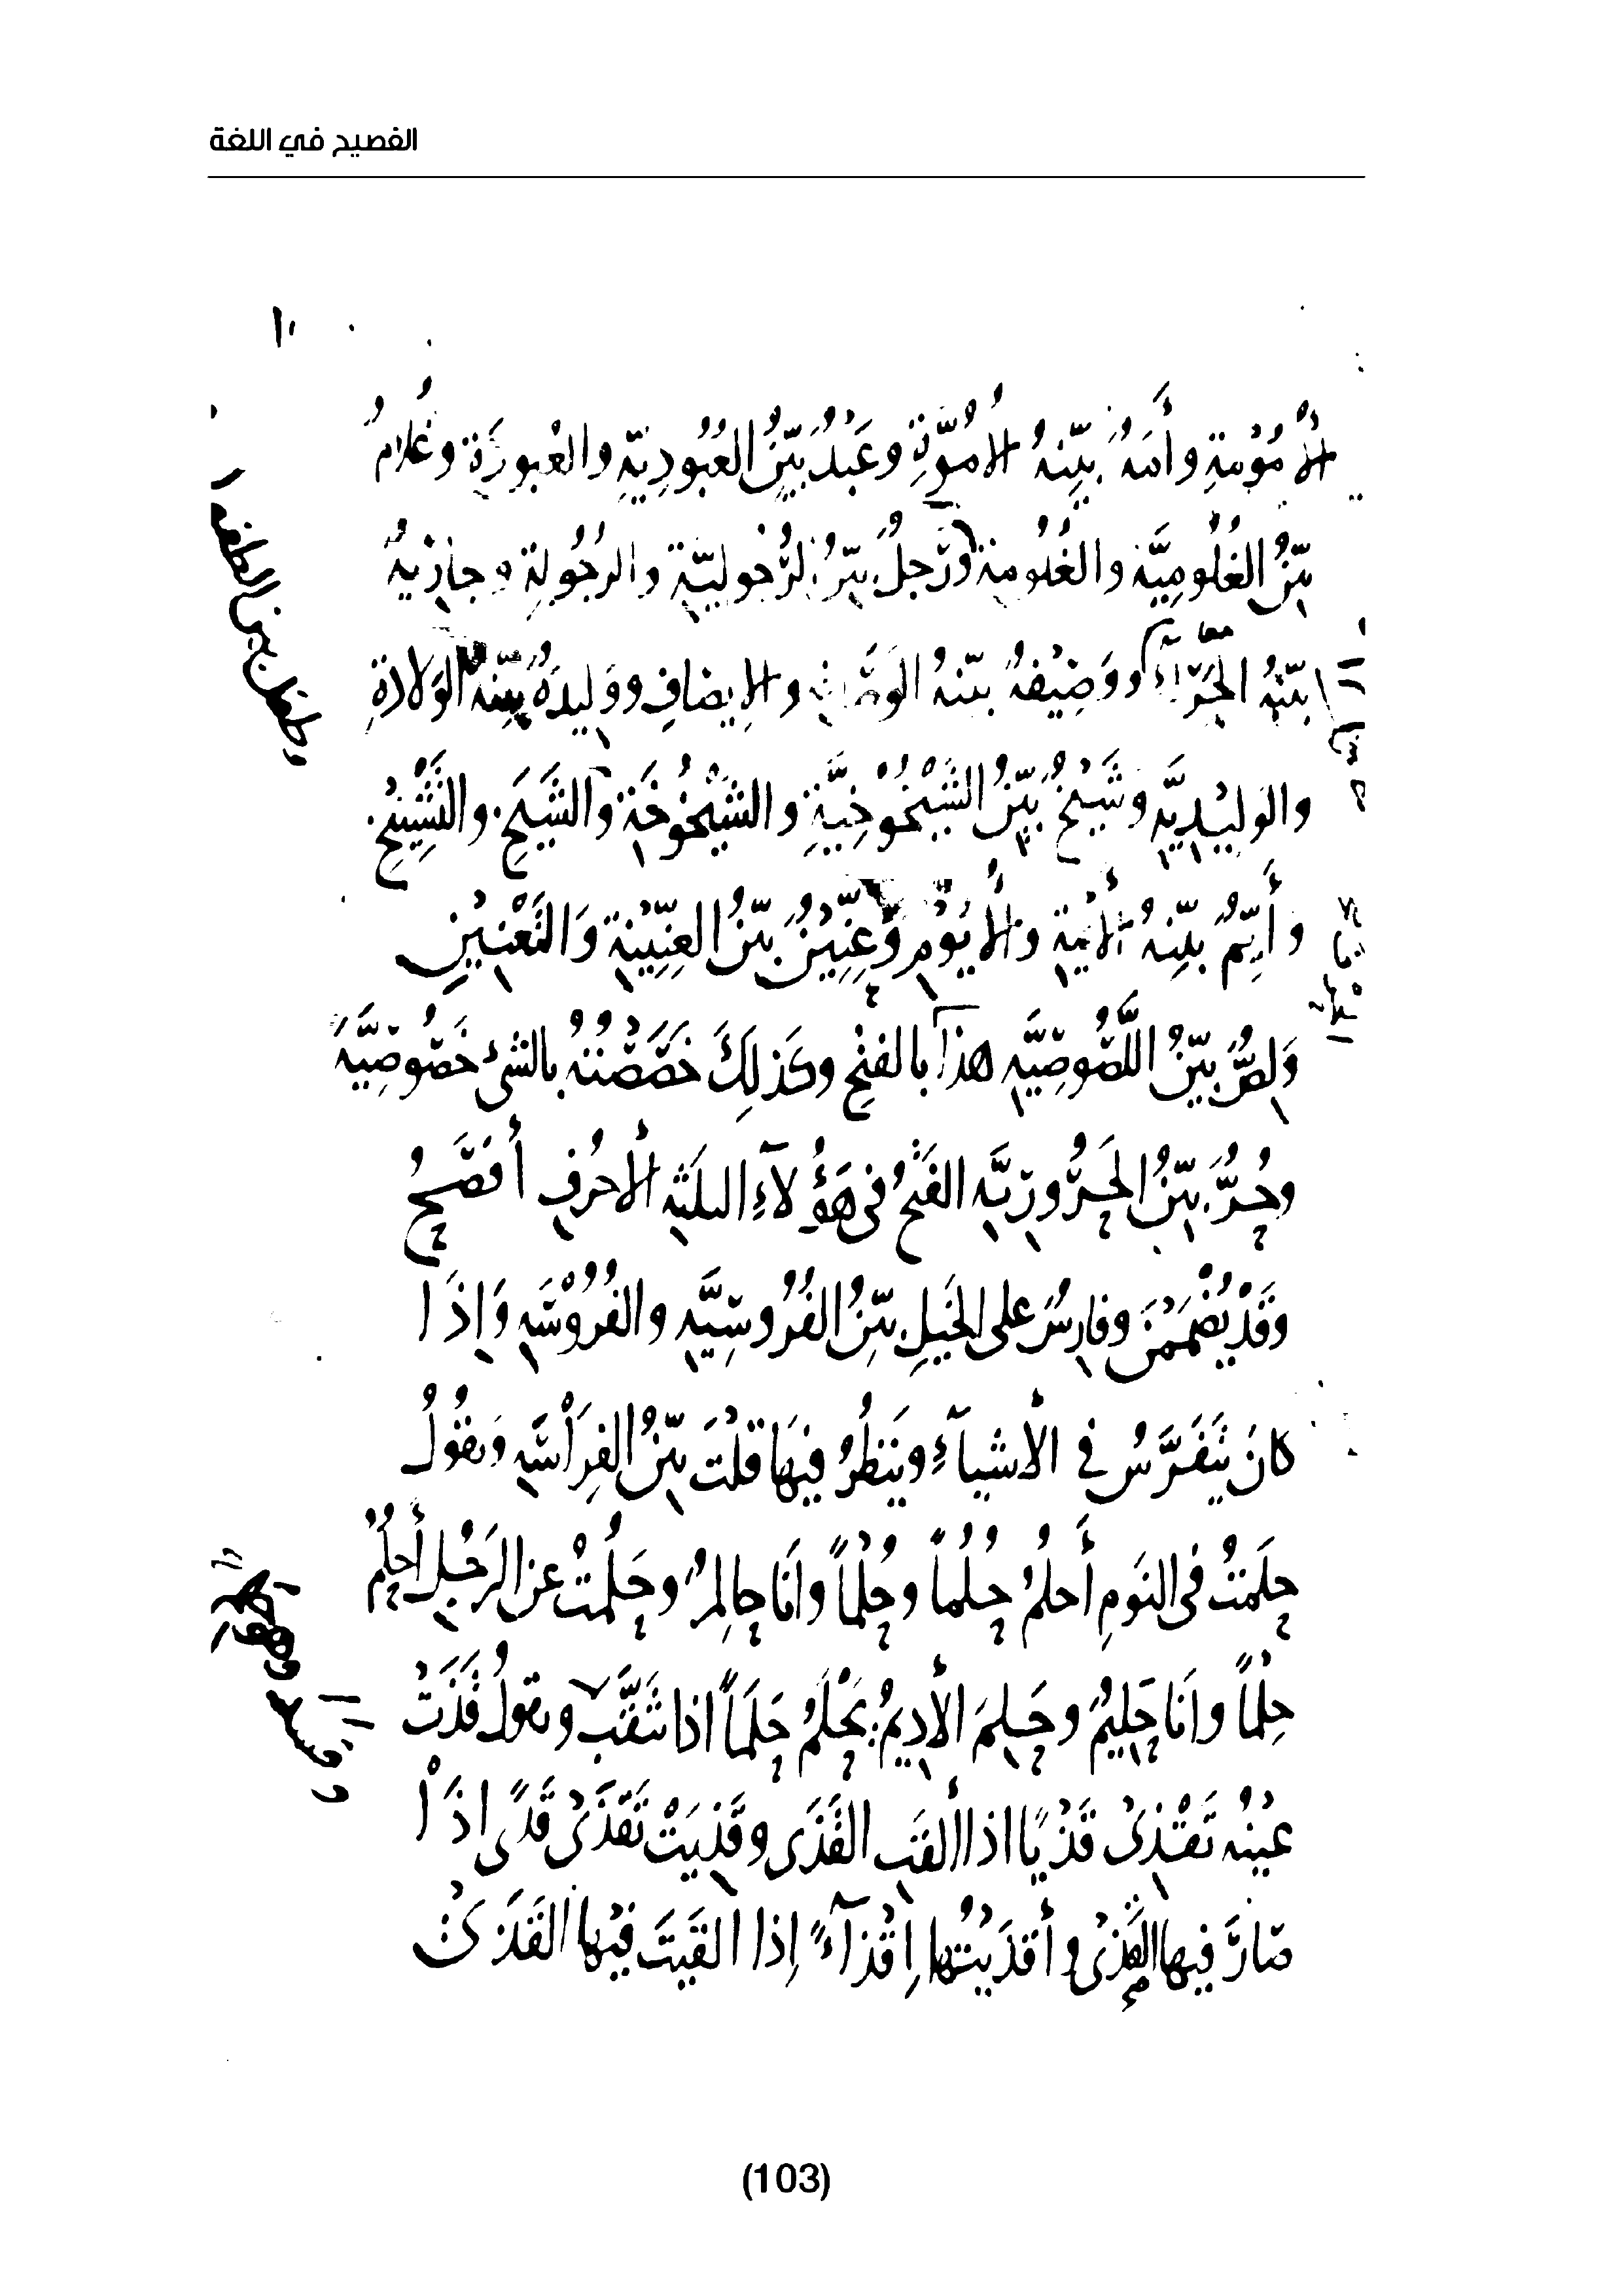 الفصيح في اللغة
١٠
الأُمُوْمَةِ وأَمَةٌ بيّنةُ الأُمُوَّةِ وعَبْدٌ بيّنُ العُبُودِيّةِ والعُبودَةِ وغُلامٌ
بيّنُ الغُلُومِيَّةِ والغُلُومةِ ورَجلٌ بيّنُ الرُّجُوليّةِ والرُجُولةِ وجارْيةٌ
بيّنةُ الجَرَاءِ ووَصِيْفةٌ بيّنةُ الوَصَافةِ والإِيصافِ ووَليدَةٌ بيّنةُ الوَلادةِ
والوَليْدِيَّةِ وشَيْخٌ بيّنُ الشَّيْخُوْخِيَّةِ والشَيْخُوخَةِ والشَّيَخِ والتَّشْيِيْخِ
وأَيّمٌ بيّنةُ الأَيْمةِ والأُيُوْمِ وعِنِّيْنٌ بيّنُ العِنِّيْنَةِ وَالتَّعْنِيْنِ
وَلِصٌّ بيّنُ اللَّصُوصِيَّةِ هذا بالفتحِ وكَذلِكَ خَصَصْتُهُ بالشىءِ خَصُوصِيَّةً
وحُرٌّ بيّنُ الحَرُورِيَّةِ الفَتْحُ فى هَؤُلآءِ الثلثةِ الأَحرُفِ أَفصَحُ
وقَدْ يُضْمَمْنَ وفارِسٌ على الخَيلِ بيّنُ الفُرُوسِيَّةِ والفُرُوْسَةِ وَإِذَا
كانَ يَتَفَرَّسُ في الأشيآءِ ويَنظُرُ فيهَا قلْتَ بيّنُ الفِرَاْسَةِ وتقُولُ
حلَمْتُ فى النَومِ أَحلُمُ حُلُماً وحُلْماً وأنَا حالِمٌ وحَلُمْتُ عن الرَجُلِ أَحلُمُ
حِلْماً وأنَا حَلِيمٌ وحَلِمَ الأَدِيمُ يَحْلَمُ حَلَماً اذا تَثَقَّبَ وتقولُ قَذَتْ
عيْنُه تَقْذِىْ قَذْيًا اذا أَلقَتِ القَذَى وقَذِيَتْ تَقْذَىْ قَذًى إذَاْ
صَارَ فيها القَذىْ وأَقذَيْتُها إِقْذآءً إِذا القَيتَ فيْها القَذَىْ
(103)